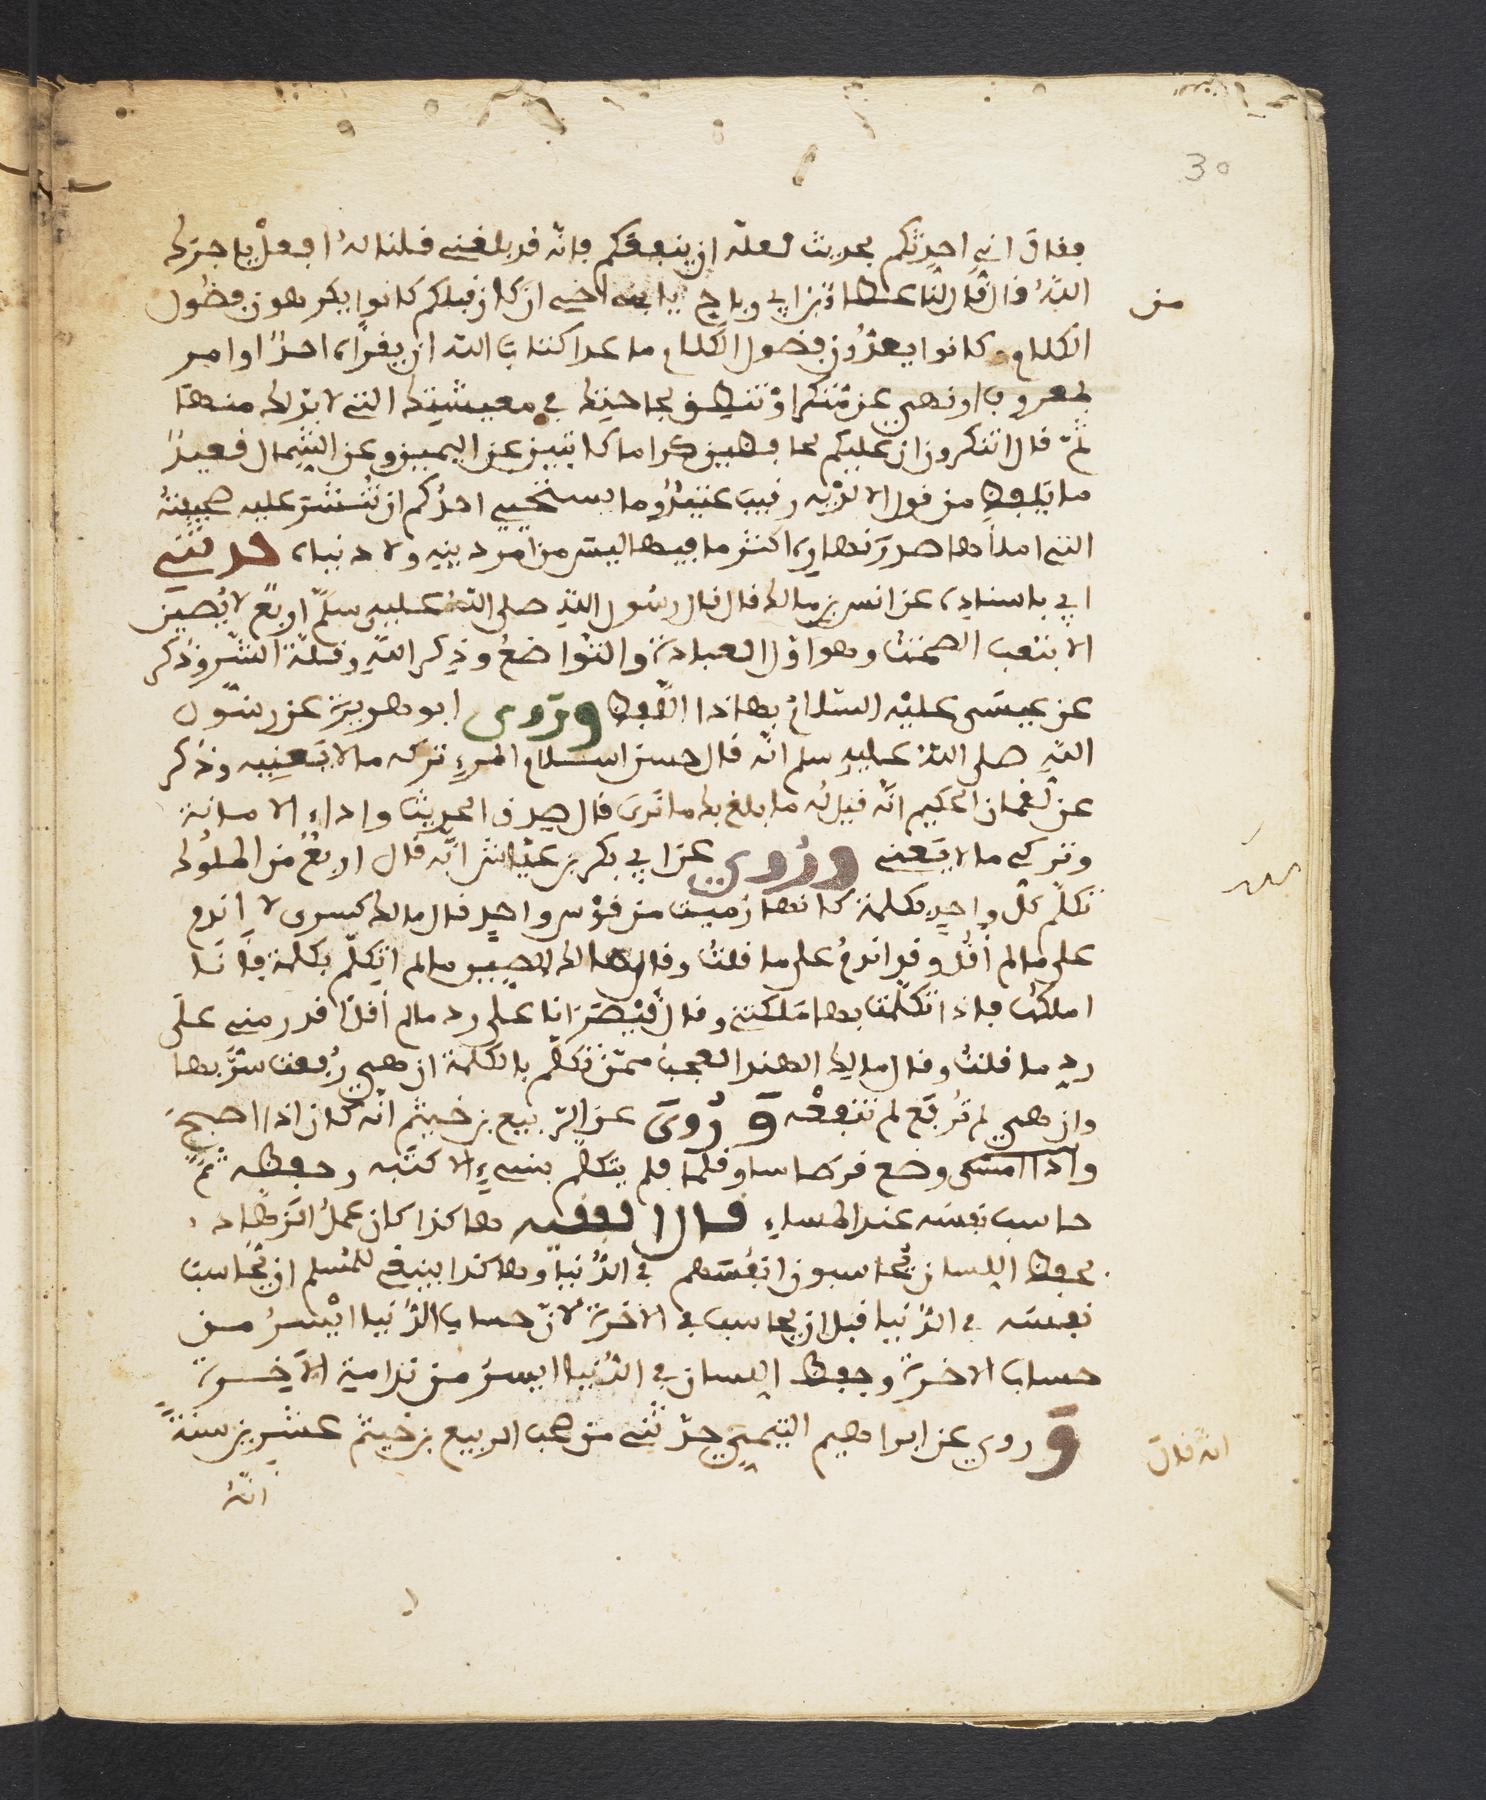 30
فقال اني احدثكم بحديث لعله ان ينفعكم فانه قد بلغني فلنا له افعل يا جرك
الله قال قال لنا عطاء بن ابي رباح يا بنه اخي ان من كان قبلكم كانوا يكرهون فضول
الكلام وكانوا يعدون فضول الكلام ما عدا كتاب الله ان يقراه احد او امر
بمعروف او نهي عن منكر او تنطق بحاجتك في معيشتك التي لا بد لك منها
ثم قال اتنكرون ان عليكم لحافظين كراما كاتبين عن اليمين وعن الشمال قعيد
ما يلفظ من قول الا لديه رقيب عتيد وما يستحيي احدكم ان تنشر عليه صحيفته
التي املاها صدر نهاره اكثر ما فيها ليس من امر دينه ولا دنياه حدثني
ابي باسناده عن انس بن مالك قال قال رسول الله صلى الله عليه وسلم اربع لا يصبن
الا بتعب الصمت وهو اول العبادة والتواضع وذكر الله وقلة الشر وذكر
عن عيسى عليه السلام بهاذا اللفظ وروى ابو هريرة عن رسول
الله صلى الله عليه سلم انه قال حسن اسلام المرء تركه ما لا يعنيه وذكر
عن لقمان الحكيم انه قيل له ما بلغ بك ما نرى قال صدق الحديث واداء الامانة
وتركي ما لا يعني وروي عن ابي بكر بن عياش انه قال اربع من الملوك
تكلم كل واحد بكلمة كانها رميت من قوس واحد قال مالك كسرى لا اندم
على ما لم اقل وقد اندم على ما قلت وقال مالك الصين ما لم اتكلم بكلمة فانا
املكها فاذا تكلمت بها ملكتني وقال قيصر انا على رد ما لم اقل اقدر مني على
رد ما قلت وقال مالك الهند العجب ممن تكلم بالكلمة ان هي رفعت ضر بها
وان هي لم ترفع لم تنفعه وروي عن الربيع بن خيثم انه كان اذا اصبح
واذا امسى وضع قرطاسا وقلما فلم يتكلم بشيء الا كتبه وحفظه ثم
حاسب نفسه عند المساء قال الفقيه هاكذا كان عمل الزهاد
بحفظ اللسان يحاسبون انفسهم في الدنيا وهاكذا ينبغي للمسلم ان يحاسب
نفسه في الدنيا قبل ان يحاسب في الاخرة لان حساب الدنيا ايسر من
حساب الاخرة وحفظ اللسان في الدنيا ايسر من ندامة الاخرة
وروي عن ابراهيم التيمي حدثني من صحب الربيع بن خيثم عشرين سنة
انه قال
انه